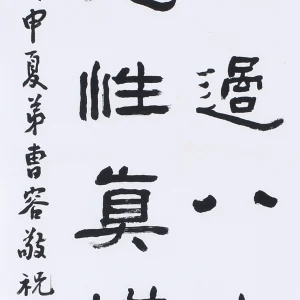 過八
性真
申夏弟曹容敬祝